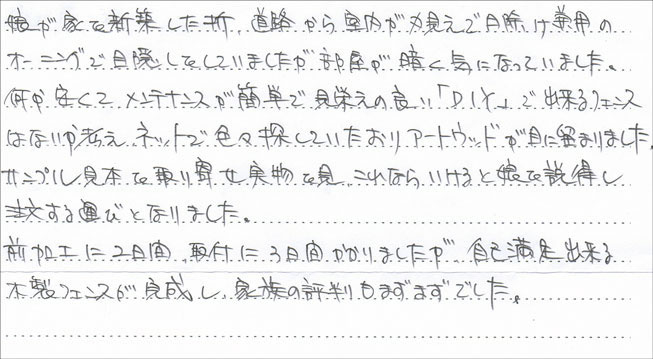 娘が家を新築した折、道路から室内が丸見えで日除け兼用の
オーニングで目隠しをしていましたが部屋が暗く気になっていました。
何か安くてメンテナンスが簡単で見栄えの良い「DIY」で出来るフェンス
はないか考え、ネットで色々探していたおりアートウッドが目に留まりました。
サンプル見本を取り寄せ実物を見、これならいけると娘を説得し
注文する運びとなりました。
前加工に2日間、取付に3日間かかりましたが、自己満足出来る
木製フェンスが完成し、家族の評判もまずまずでした。